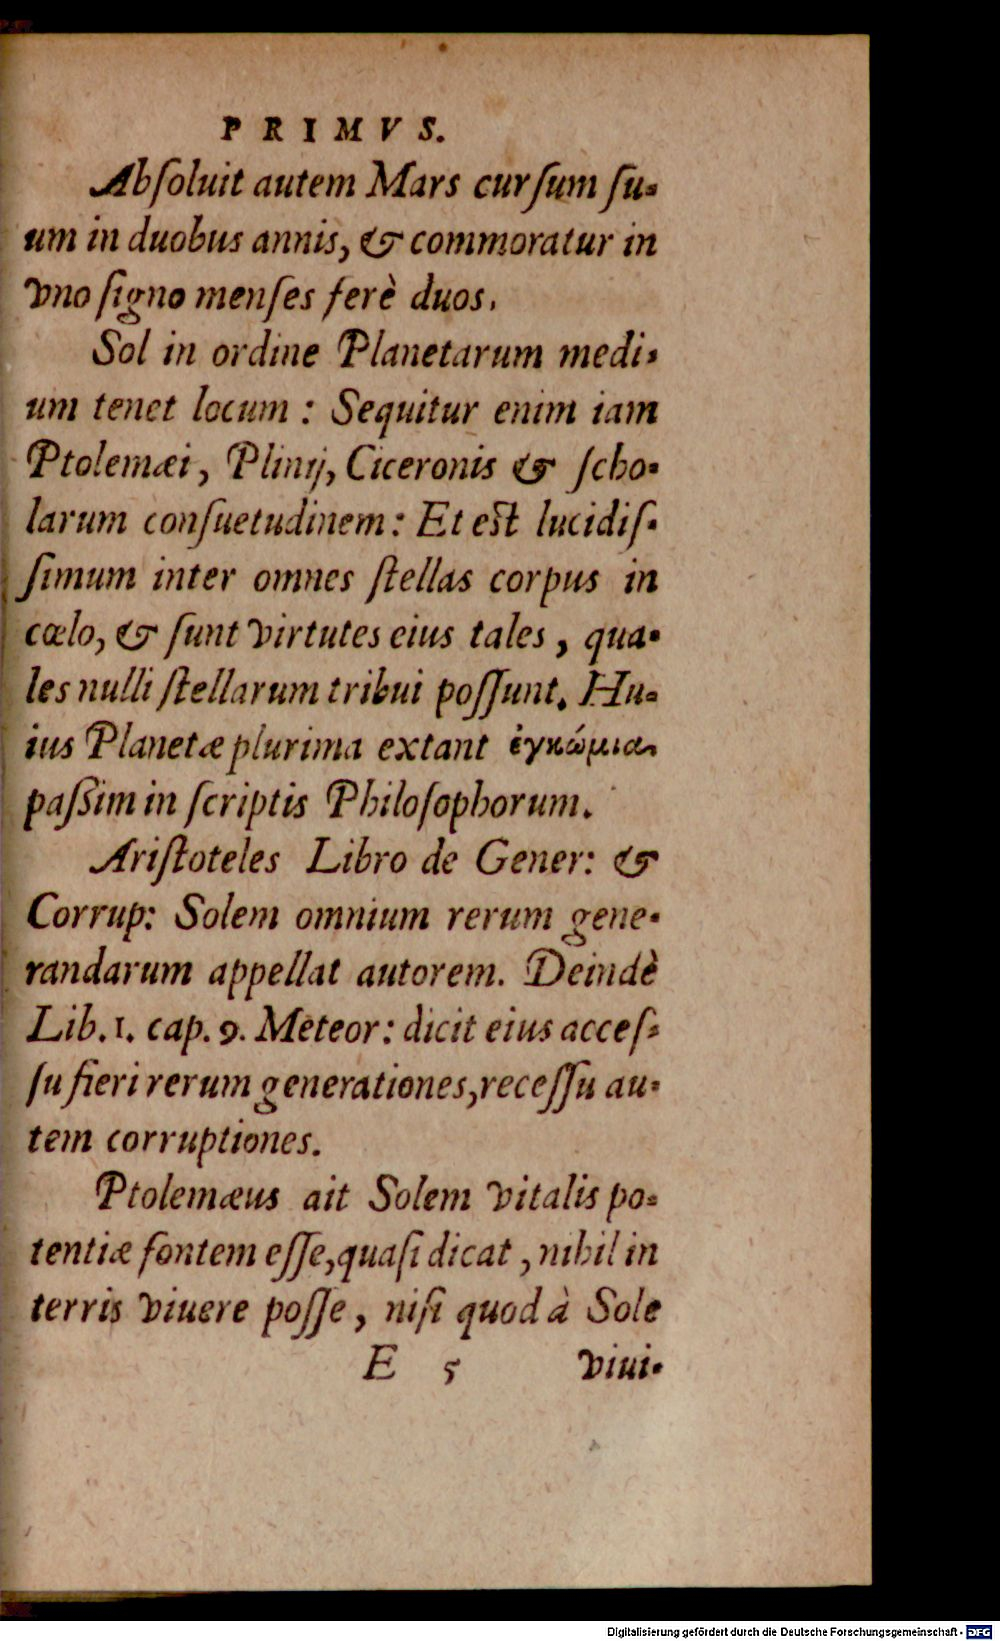 PRIMVS.
Abſoluit autem Mars curſum ſu-
um in duobus annis, & commoratur in
vno ſigno menſes ferè duos.
Sol in ordine Planetarum medi-
um tenet locum : Sequitur enim iam
Ptolemæi, Plinij, Ciceronis & ſcho-
larum conſuetudinem: Et eſt lucidiſ-
ſimum inter omnes ſtellas corpus in
cœlo, & ſunt virtutes eius tales, qua-
les nulli ſtellarum tribui poſſunt. Hu-
ius Planetæ plurima extant ἐγκώμια
paßim in ſcriptis Philoſophorum.
Ariſtoteles Libro de Gener: &
Corrup: Solem omnium rerum gene-
randarum appellat autorem. Deindè
Lib. 1. cap. 9. Meteor: dicit eius acceſ-
ſu fieri rerum generationes, receſſu au-
tem corruptiones.
Ptolemæus ait Solem vitalis po-
tentiæ fontem eſſe, quaſi dicat, nihil in
terris viuere poſſe, niſi quod à Sole
E 5 viui-
Digitalisierung gefördert durch die Deutsche Forschungsgemeinschaft - DFG